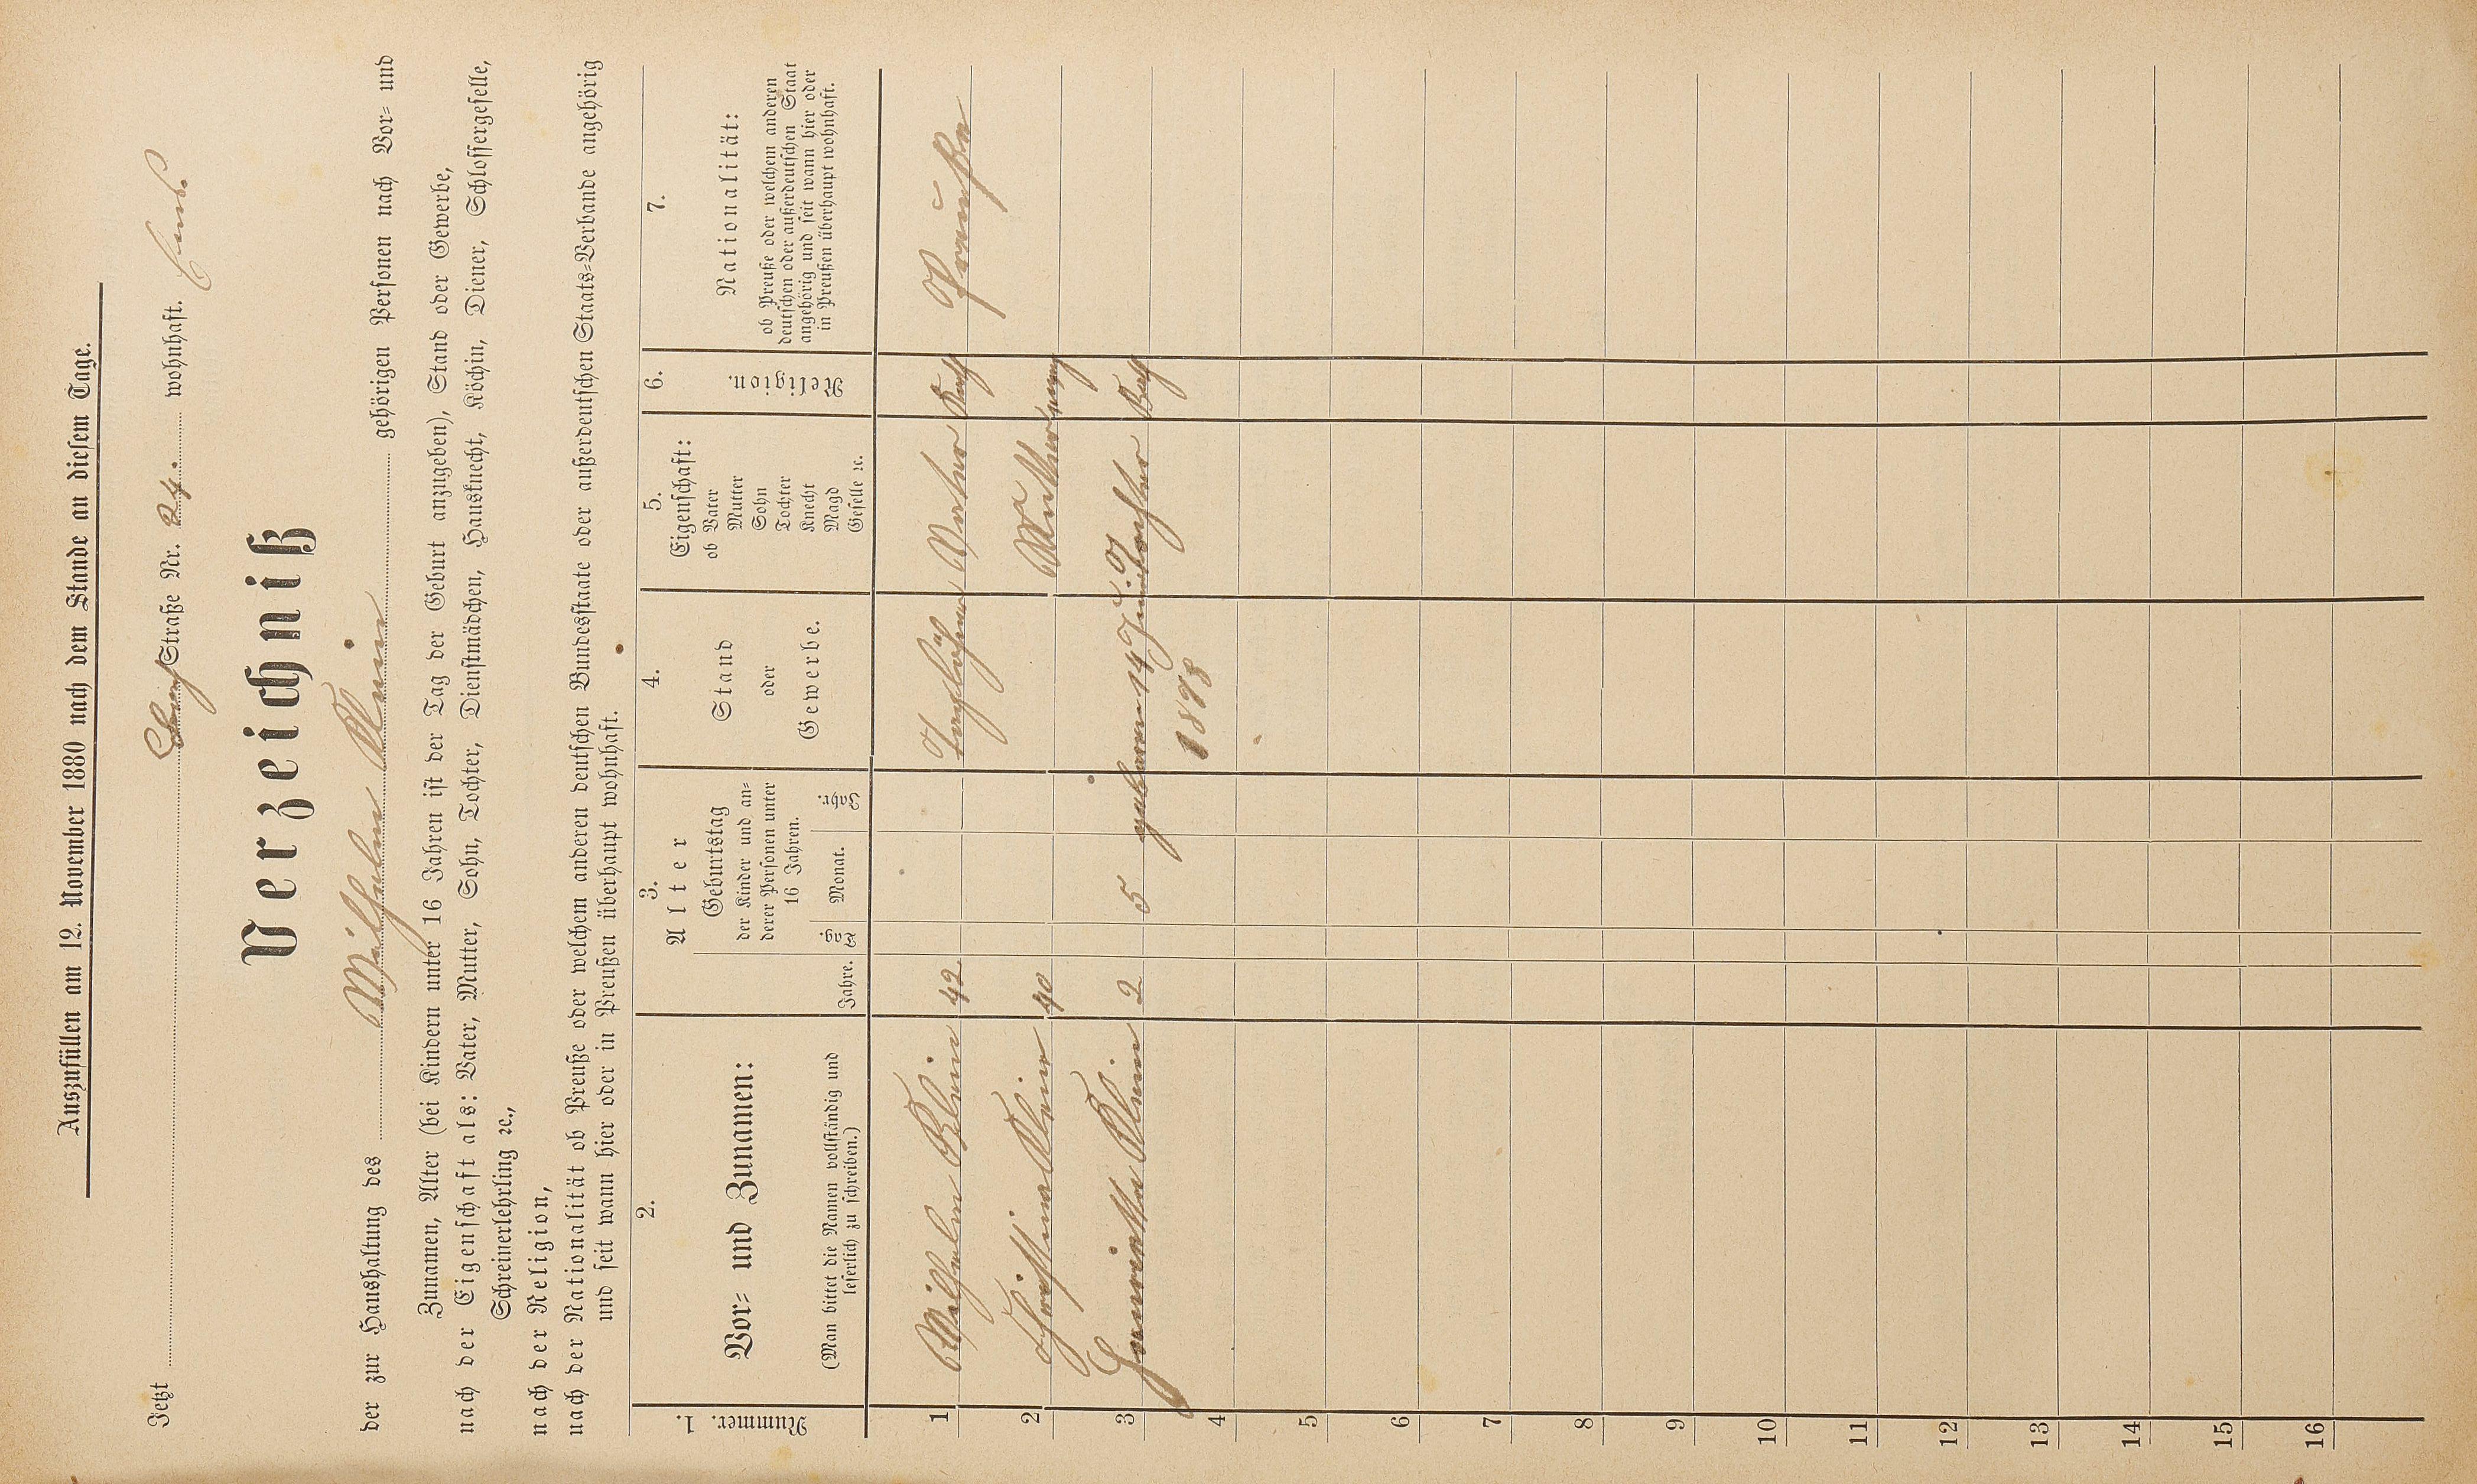 Auszufüllen am 12. November 1880 nach dem Stande an diesem Tage.
Jetzt Straße Nr. 24. wohnhaft.
Verzeichniß
der zur Haushaltung des Wilhelm Klein gehörigen Personen nach Vor- und
Zunamen, Alter (bei Kindern unter 16 Jahren ist der Tag der Geburt anzugeben), Stand oder Gewerbe,
nach der Eigenschaft als: Vater, Mutter, Sohn, Tochter, Dienstmädchen, Hausknecht, Köchin, Diener, Schlossergeselle,
Schreinerlehrling ꝛc.,
nach der Religion,
nach der Nationalität ob Preuße oder welchem anderen deutschen Bundesstaate oder außerdeutschen Staats-Verbande angehörig
und seit wann hier oder in Preußen überhaupt wohnhaft.
1.
Nummer.
2.
Vor- und Zunamen:
(Man bittet die Namen vollständig und
leserlich zu schreiben.)
3.
Alter
Jahre.
Geburtstag
der Kinder und an-
derer Personen unter
16 Jahren.
Tag
Monat.
Jahr.
4.
Stand
oder
Gewerbe.
5.
Eigenschaft:
ob Vater
Mutter
Sohn
Tochter
Knecht
Magd
Geselle ꝛc.
6.
Religion.
7.
Nationalität:
ob Preuße oder welchem anderen
deutschen oder außerdeutschen Staat
angehörig und seit wann hier oder
in Preußen überhaupt wohnhaft.
1 Wilhelm Klein 42 Taglöhner Vater Kath Preuße
2 Christina Klein 40 Mutter evang
3 Henriette Klein 2 5 geboren 14 Juni 1878 Tochter Kath
4
5
6
7
8
9
10
11
12
13
14
15
16